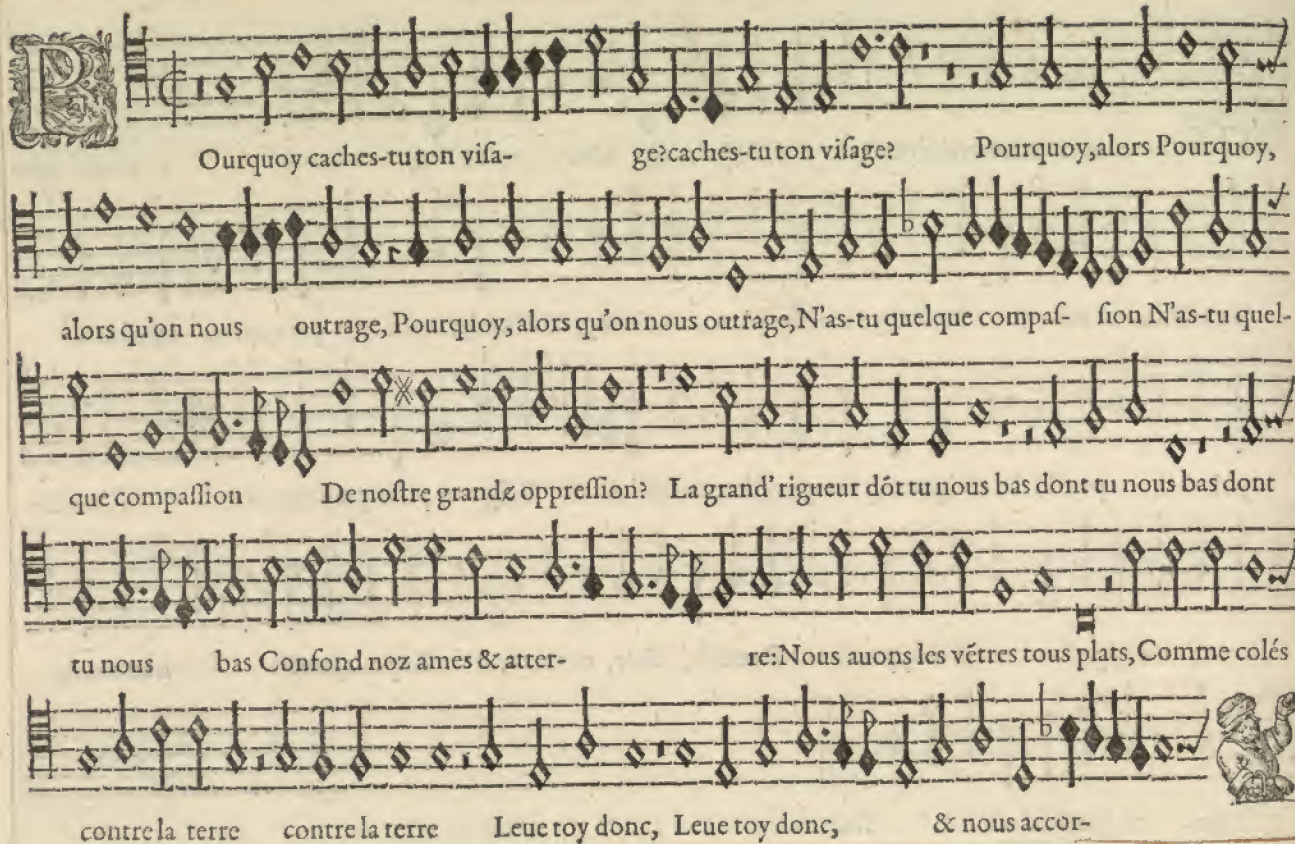 POurquoy caches-tu ton viſa- ge?caches-tu ton viſage? Pourquoy,alors Pourquoy,
alors qu'on nous outrage, Pourquoy, alors qu'on nous outrage,N'as-tu quelque compaſ- ſion N'as-tu quel-
que compaſſion De noſtre grande oppreſſion? La grand' rigueur dõt tu nous bas dont tu nous bas dont
tu nous bas Confond noz ames & atter- re:Nous auons les vẽtres tous plats,Comme colés
contre la terre contre la terre Leue toy donc, Leue toy donc, & nous accor-